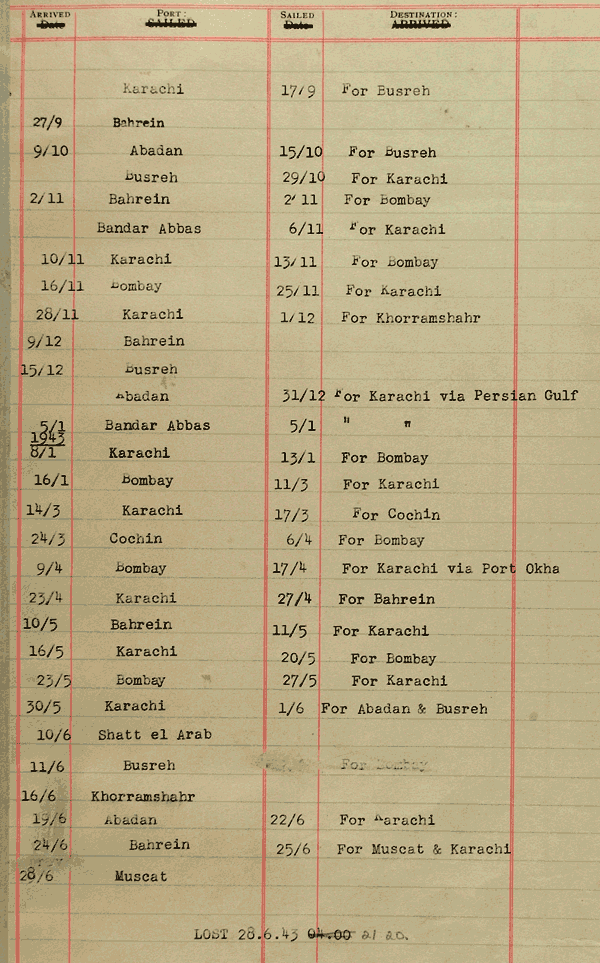 ARRIVED PORT: SAILED DESTINATION:
Date SAILED Date ARRIVED
Karachi 17/9 For Busreh
27/9 Bahrein
9/10 Abadan 15/10 For Busreh
Busreh 29/10 For Karachi
2/11 Bahrein 2/11 For Bombay
Bandar Abbas 6/11 For Karachi
10/11 Karachi 13/11 For Bombay
16/11 Bombay 25/11 For Karachi
28/11 Karachi 1/12 For Khorramshahr
9/12 Bahrein
15/12 Busreh
Abadan 31/12 For Karachi via Persian Gulf
5/1 Bandar Abbas 5/1 " "
1943
8/1 Karachi 13/1 For Bombay
16/1 Bombay 11/3 For Karachi
14/3 Karachi 17/3 For Cochin
24/3 Cochin 6/4 For Bombay
9/4 Bombay 17/4 For Karachi via Port Okha
23/4 Karachi 27/4 For Bahrein
10/5 Bahrein 11/5 For Karachi
16/5 Karachi 20/5 For Bombay
23/5 Bombay 27/5 For Karachi
30/5 Karachi 1/6 For Abadan & Busreh
10/6 Shatt el Arab
11/6 Busreh For Bombay
16/6 Khorramshahr
19/6 Abadan 22/6 For Karachi
24/6 Bahrein 25/6 For Muscat & Karachi
28/6 Muscat
LOST 28.6.43 04.00 21 20.